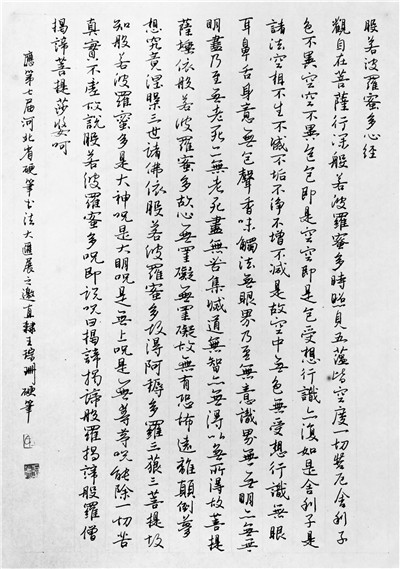 般若波羅蜜多心經
觀自在菩薩行深般若波羅蜜多時照見五蘊皆空度一切苦厄舍利子
色不異空空不異色色即是空空即是色受想行識亦復如是舍利子是
諸法空相不生不滅不垢不淨不增不減是故空中無色無受想行識無眼
耳鼻舌身意無色聲香味觸法無眼界乃至無意識界無無明亦無無
明盡乃至無老死亦無老死盡無苦集滅道無智亦無得以無所得故菩提
薩埵依般若波羅蜜多故心無罣礙無罣礙故無有恐怖遠離顛倒夢
想究竟涅槃三世諸佛依般若波羅蜜多故得阿耨多羅三藐三菩提故
知般若波羅蜜多是大神呪是大明呪是無上呪是無等等呪能除一切苦
真實不虛故說般若波羅蜜多呪即說呪曰揭諦揭諦般羅揭諦般羅僧
揭諦菩提莎婆呵
應第七屆河北省硬筆书法大匯展之邀直隸王瑞珊硬筆